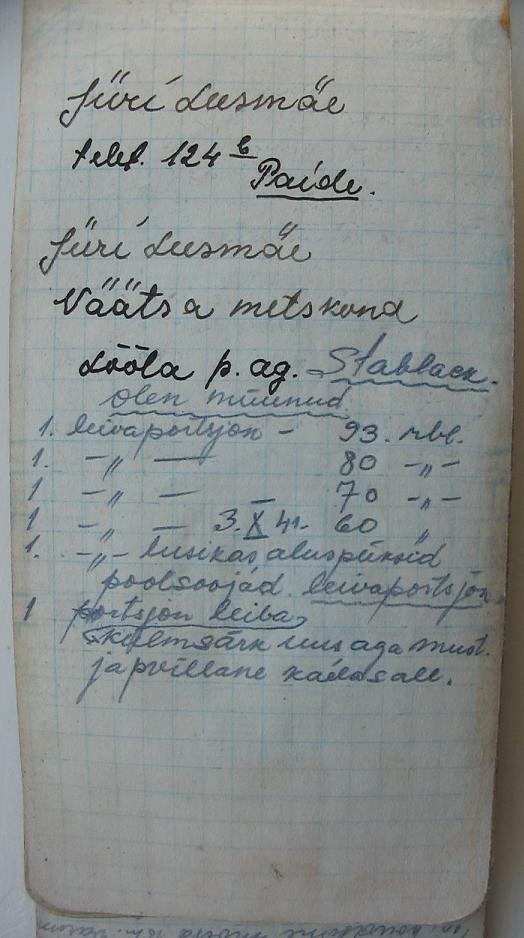 Jüri Leesmäe
telef. 124 b
Paide.
Jüri Leesmäe
Väätsa metskond
Lõõla p. ag. Stablack.
olen müünud
1. leivaportsjon - 93. rbl.
1. -„- — 80 -„-
1 -„- — 70 -„-
1 -„- — 3. X 41. 60 „
1. -„- lusikas aluspüksid
poolsoojad. leivaportsjon.
1 portsjon leiba,
külmsärk uus aga must.
ja pvillane kaelasall.